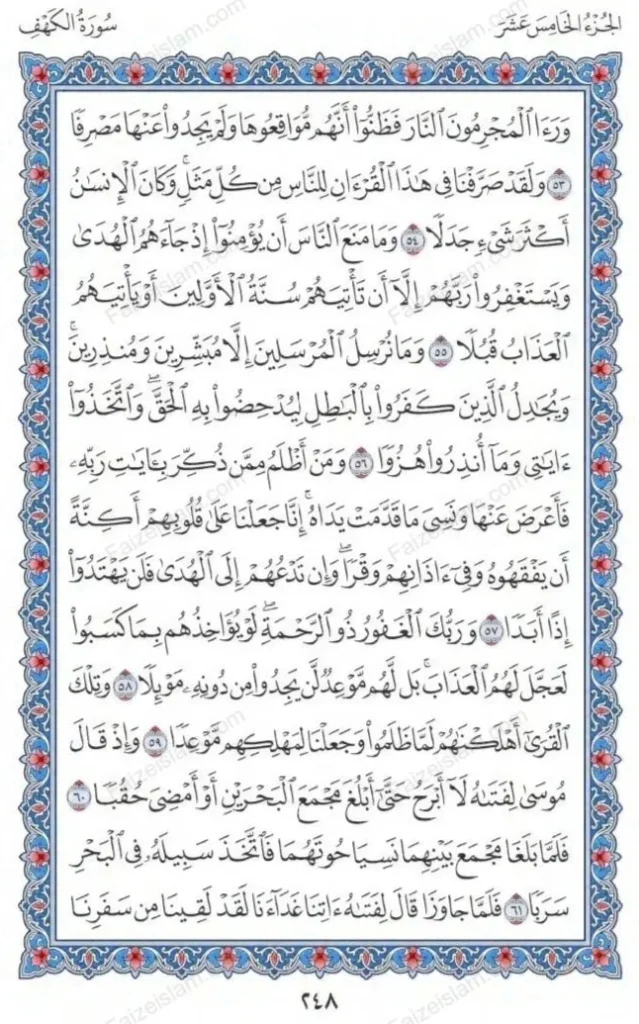 الجُزْءُ الخَامِسَ عَشَرَ
سُورَةُ الكَهْفِ
وَرَءَا ٱلْمُجْرِمُونَ ٱلنَّارَ فَظَنُّوٓا۟ أَنَّهُم مُّوَاقِعُوهَا وَلَمْ يَجِدُوا۟ عَنْهَا مَصْرِفًا
٥٣ وَلَقَدْ صَرَّفْنَا فِى هَـٰذَا ٱلْقُرْءَانِ لِلنَّاسِ مِن كُلِّ مَثَلٍ ۚ وَكَانَ ٱلْإِنسَـٰنُ
أَكْثَرَ شَىْءٍ جَدَلًا ٥٤ وَمَا مَنَعَ ٱلنَّاسَ أَن يُؤْمِنُوٓا۟ إِذْ جَآءَهُمُ ٱلْهُدَىٰ
وَيَسْتَغْفِرُوا۟ رَبَّهُمْ إِلَّآ أَن تَأْتِيَهُمْ سُنَّةُ ٱلْأَوَّلِينَ أَوْ يَأْتِيَهُمُ
ٱلْعَذَابُ قُبُلًا ٥٥ وَمَا نُرْسِلُ ٱلْمُرْسَلِينَ إِلَّا مُبَشِّرِينَ وَمُنذِرِينَ ۚ
وَيُجَـٰدِلُ ٱلَّذِينَ كَفَرُوا۟ بِٱلْبَـٰطِلِ لِيُدْحِضُوا۟ بِهِ ٱلْحَقَّ ۖ وَٱتَّخَذُوٓا۟
ءَايَـٰتِى وَمَآ أُنذِرُوا۟ هُزُوًا ٥٦ وَمَنْ أَظْلَمُ مِمَّن ذُكِّرَ بِـَٔايَـٰتِ رَبِّهِۦ
فَأَعْرَضَ عَنْهَا وَنَسِىَ مَا قَدَّمَتْ يَدَاهُ ۚ إِنَّا جَعَلْنَا عَلَىٰ قُلُوبِهِمْ أَكِنَّةً
أَن يَفْقَهُوهُ وَفِىٓ ءَاذَانِهِمْ وَقْرًا ۖ وَإِن تَدْعُهُمْ إِلَى ٱلْهُدَىٰ فَلَن يَهْتَدُوٓا۟
إِذًا أَبَدًا ٥٧ وَرَبُّكَ ٱلْغَفُورُ ذُو ٱلرَّحْمَةِ ۖ لَوْ يُؤَاخِذُهُم بِمَا كَسَبُوا۟
لَعَجَّلَ لَهُمُ ٱلْعَذَابَ ۚ بَل لَّهُم مَّوْعِدٌ لَّن يَجِدُوا۟ مِن دُونِهِۦ مَوْئِلًا ٥٨ وَتِلْكَ
ٱلْقُرَىٰٓ أَهْلَكْنَـٰهُمْ لَمَّا ظَلَمُوا۟ وَجَعَلْنَا لِمَهْلِكِهِم مَّوْعِدًا ٥٩ وَإِذْ قَالَ
مُوسَىٰ لِفَتَىٰهُ لَآ أَبْرَحُ حَتَّىٰٓ أَبْلُغَ مَجْمَعَ ٱلْبَحْرَيْنِ أَوْ أَمْضِىَ حُقُبًا ٦٠
فَلَمَّا بَلَغَا مَجْمَعَ بَيْنِهِمَا نَسِيَا حُوتَهُمَا فَٱتَّخَذَ سَبِيلَهُۥ فِى ٱلْبَحْرِ
سَرَبًا ٦١ فَلَمَّا جَاوَزَا قَالَ لِفَتَىٰهُ ءَاتِنَا غَدَآءَنَا لَقَدْ لَقِينَا مِن سَفَرِنَا
٢٤٨
Faizeislam.com